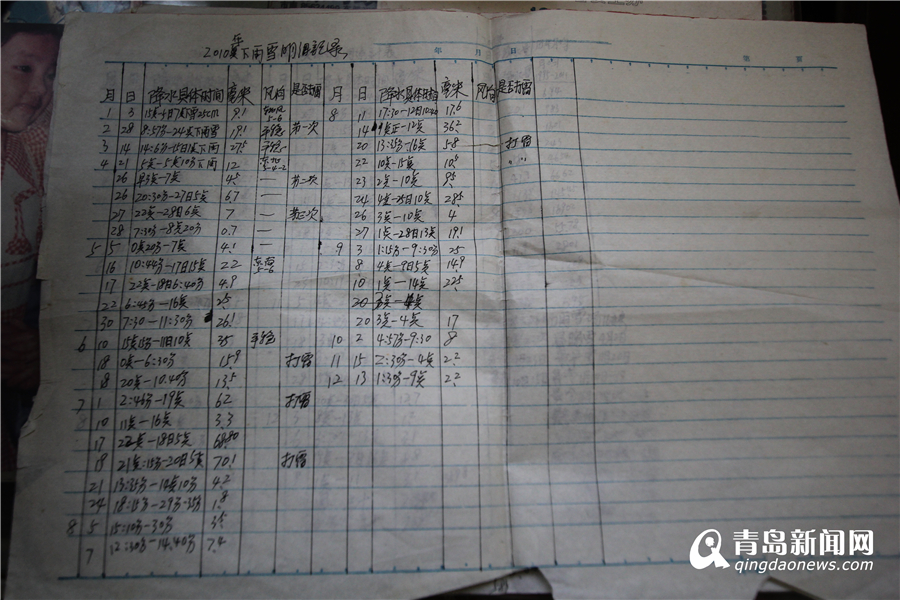 2010年下雨雪明细记录
年 月 日
月 日 降水具体时间 毫米 风向 是否打雷 月 日 降水具体时间 毫米 风向 是否打雷
1 3 9.1 8 11 17:30-12日10:40 17.6
2 28 8:57分-24点下雨雪 19.1 第一次 14 36.2
3 14 14:6分-15日1点下雨 27.5 20 13:35分-16点 58 打雷
4 21 1点-5点10分下雨 12 22 10点-15点 10.5
26 早3点-7点 4.5 一 第二次 23 2点-10点 9.5
26 20:30分-27日5点 6.7 一 24 4点-25日10点 28.5
27 22点-28日6点 7 一 第三次 26 3点-10点 4
28 7:30分-8点20分 0.7 一 27 1点-28日13点 19.1
5 5 0点20分-7点 4.1 一 9 3 1:15分-9:30分 25
16 10:44分-17日15点 22 8 4点-9日5点 14.9
17 22点-18日6:40分 4.9 10 1点-14点 22.5
22 6:45分-16点 2.5 20
30 7:30-11:30分 26.1 20 3点-4点 17
6 10 15点15分-11日10点 35 10 2 4:57分-9:30 8
18 0点-6:30分 15.9 打雷 11 15 2:30分-4点 2.2
18 20点-10.40分 13.5 12 13 1:30分-9点 2.2
7 1 2:46分-19点 62 打雷
10 11点-16点 3.3
17 22点-18日5点 68.80
19 21点:15分-20日5点 70.1 打雷
21 13:35分-14点10分 4.2
24 18:15分-29分-35分 1.8
8 5 15:10分-30分 3.5
7 12:30分-14.40分 7.4
青岛新闻网
qingdaonews.com